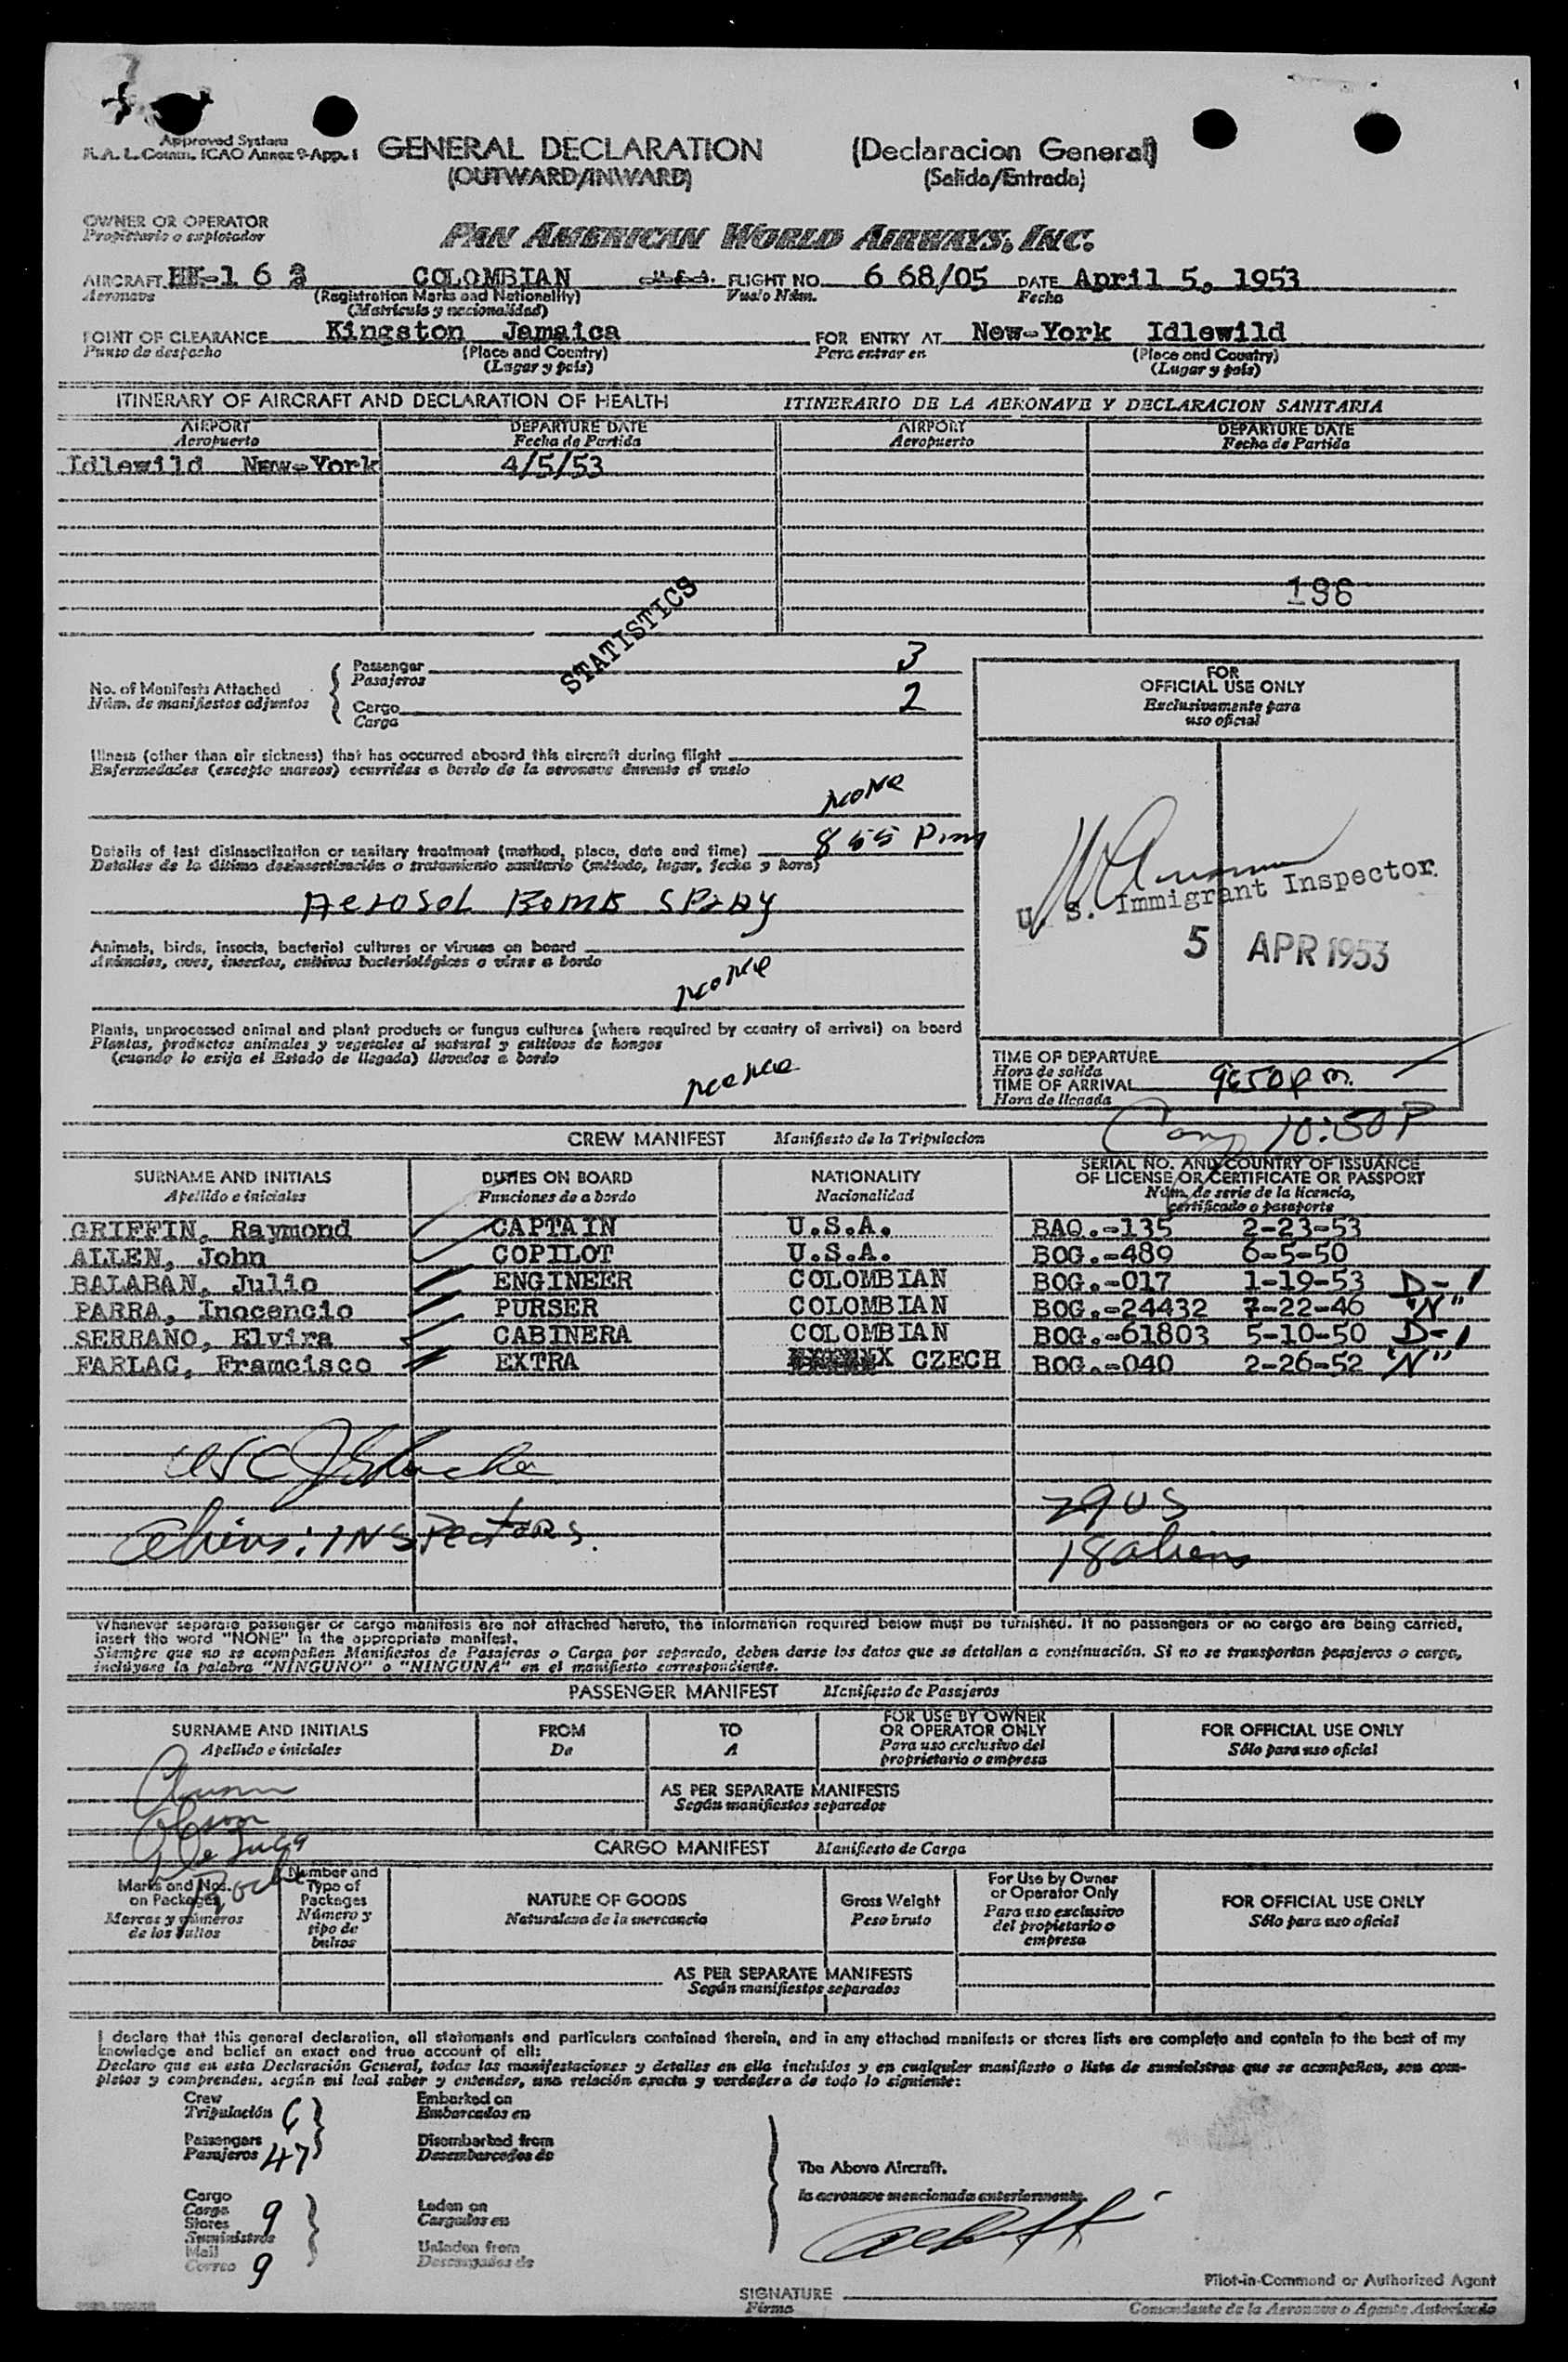 Approved System
R.A.L. Comm. ICAO Annex 9-App. 1
GENERAL DECLARATION (Declaracion General)
(OUTWARD/INWARD) (Salida/Entrada)
OWNER OR OPERATOR
Propietario o explotador
PAN AMERICAN WORLD AIRWAYS, INC.
AIRCRAFT HK-1 6 3 COLOMBIAN U.S.A. FLIGHT NO. 6 68/05 DATE April 5, 1953
Aeronave (Registration Marks and Nationality) Vuelo Núm. Fecha
(Matricula y nacionalidad)
POINT OF CLEARANCE Kingston Jamaica FOR ENTRY AT New-York Idlewild
Punto de despacho (Place and Country) Para entrar en (Place and Country)
(Lugar y país) (Lugar y país)
ITINERARY OF AIRCRAFT AND DECLARATION OF HEALTH ITINERARIO DE LA AERONAVE Y DECLARACION SANITARIA
AIRPORT DEPARTURE DATE AIRPORT DEPARTURE DATE
Aeropuerto Fecha de Partida Aeropuerto Fecha de Partida
Idlewild New-York 4/5/53
196
STATISTICS
Passenger 3
Pasajeros
No. of Manifests Attached
Núm. de manifiestos adjuntos
Cargo 2
Carga
FOR
OFFICIAL USE ONLY
Exclusivamente para
uso oficial
Illness (other than air sickness) that has occurred aboard this aircraft during flight
Enfermedades (excepto mareos) ocurridas a bordo de la aeronave durante el vuelo
NONe
Details of last disinsectization or sanitary treatment (method, place, date and time) 8 55 Pm
Detalles de la última desinsectización o tratamiento sanitario (método, lugar, fecha y hora)
Aerosol Bomb SPray
U. S. Immigrant Inspector
5 APR 1953
Animals, birds, insects, bacterial cultures or viruses on board
Animales, aves, insectos, cultivos bacteriológicos o virus a bordo
NONe
Plants, unprocessed animal and plant products or fungus cultures (where required by country of arrival) on board
Plantas, productos animales y vegetales al natural y cultivos de hongos
(cuando lo exija el Estado de llegada) llevados a bordo
NONe
TIME OF DEPARTURE
Hora de salida
TIME OF ARRIVAL 9:50 p m.
Hora de llegada
10:50 P
CREW MANIFEST Manifiesto de la Tripulacion
SURNAME AND INITIALS DUTIES ON BOARD NATIONALITY SERIAL NO. AND COUNTRY OF ISSUANCE
OF LICENSE OR CERTIFICATE OR PASSPORT
Apellido e iniciales Funciones de a bordo Nacionalidad Núm. de serie de la licencia,
certificado o pasaporte
GRIFFIN, Raymond CAPTAIN U.S.A. BAQ.-135 2-23-53
ALLEN, John COPILOT U.S.A. BOG.-489 6-5-50
BALABAN, Julio ENGINEER COLOMBIAN BOG.-017 1-19-53 D-1
PARRA, Inocencio PURSER COLOMBIAN BOG.-24432 7-22-46 "N"
SERRANO, Elvira CABINERA COLOMBIAN BOG.-61803 5-10-50 D-1
FARLAC, Framcisco EXTRA CZECH BOG.-040 2-26-52 "N"
USC
Aliens: INSPectors.
29 US
18 aliens
Whenever separate passenger or cargo manifests are not attached hereto, the information required below must be furnished. If no passengers or no cargo are being carried,
insert the word "NONE" in the appropriate manifest.
Siempre que no se acompañen Manifiestos de Pasajeros o Carga por separado, deben darse los datos que se detallan a continuación. Si no se transportan pasajeros o carga,
inclúyase la palabra "NINGUNO" o "NINGUNA" en el manifiesto correspondiente.
PASSENGER MANIFEST Manifiesto de Pasajeros
SURNAME AND INITIALS FROM TO FOR USE BY OWNER
OR OPERATOR ONLY FOR OFFICIAL USE ONLY
Apellido e iniciales De A Para uso exclusivo del
propietario o empresa Sólo para uso oficial
AS PER SEPARATE MANIFESTS
Según manifiestos separados
CARGO MANIFEST Manifiesto de Carga
Marks and Nos.
on Packages
Marcas y números
de los bultos
Number and
Type of
Packages
Número y
tipo de
bultos
NATURE OF GOODS
Naturaleza de la mercancía
Gross Weight
Peso bruto
For Use by Owner
or Operator Only
Para uso exclusivo
del propietario o
empresa
FOR OFFICIAL USE ONLY
Sólo para uso oficial
AS PER SEPARATE MANIFESTS
Según manifiestos separados
I declare that this general declaration, all statements and particulars contained therein, and in any attached manifests or stores lists are complete and contain to the best of my
knowledge and belief an exact and true account of all:
Declaro que en esta Declaración General, todas las manifestaciones y detalles en ella incluídos y en cualquier manifiesto o lista de suministros que se acompañen, son com-
pletos y comprenden, según mi leal saber y entender, una relación exacta y verdadera de todo lo siguiente:
Crew Embarked on
Tripulación 6 Embarcados en
Passengers Disembarked from
Pasajeros 47 Desembarcados de
The Above Aircraft.
la aeronave mencionada anteriormente.
Cargo
Carga
Stores 9
Suministros
Mail
Correo 9
Laden on
Cargados en
Unladen from
Descargados de
Pilot-in-Command or Authorized Agent
SIGNATURE
Firma Comandante de la Aeronave o Agente Autorizado